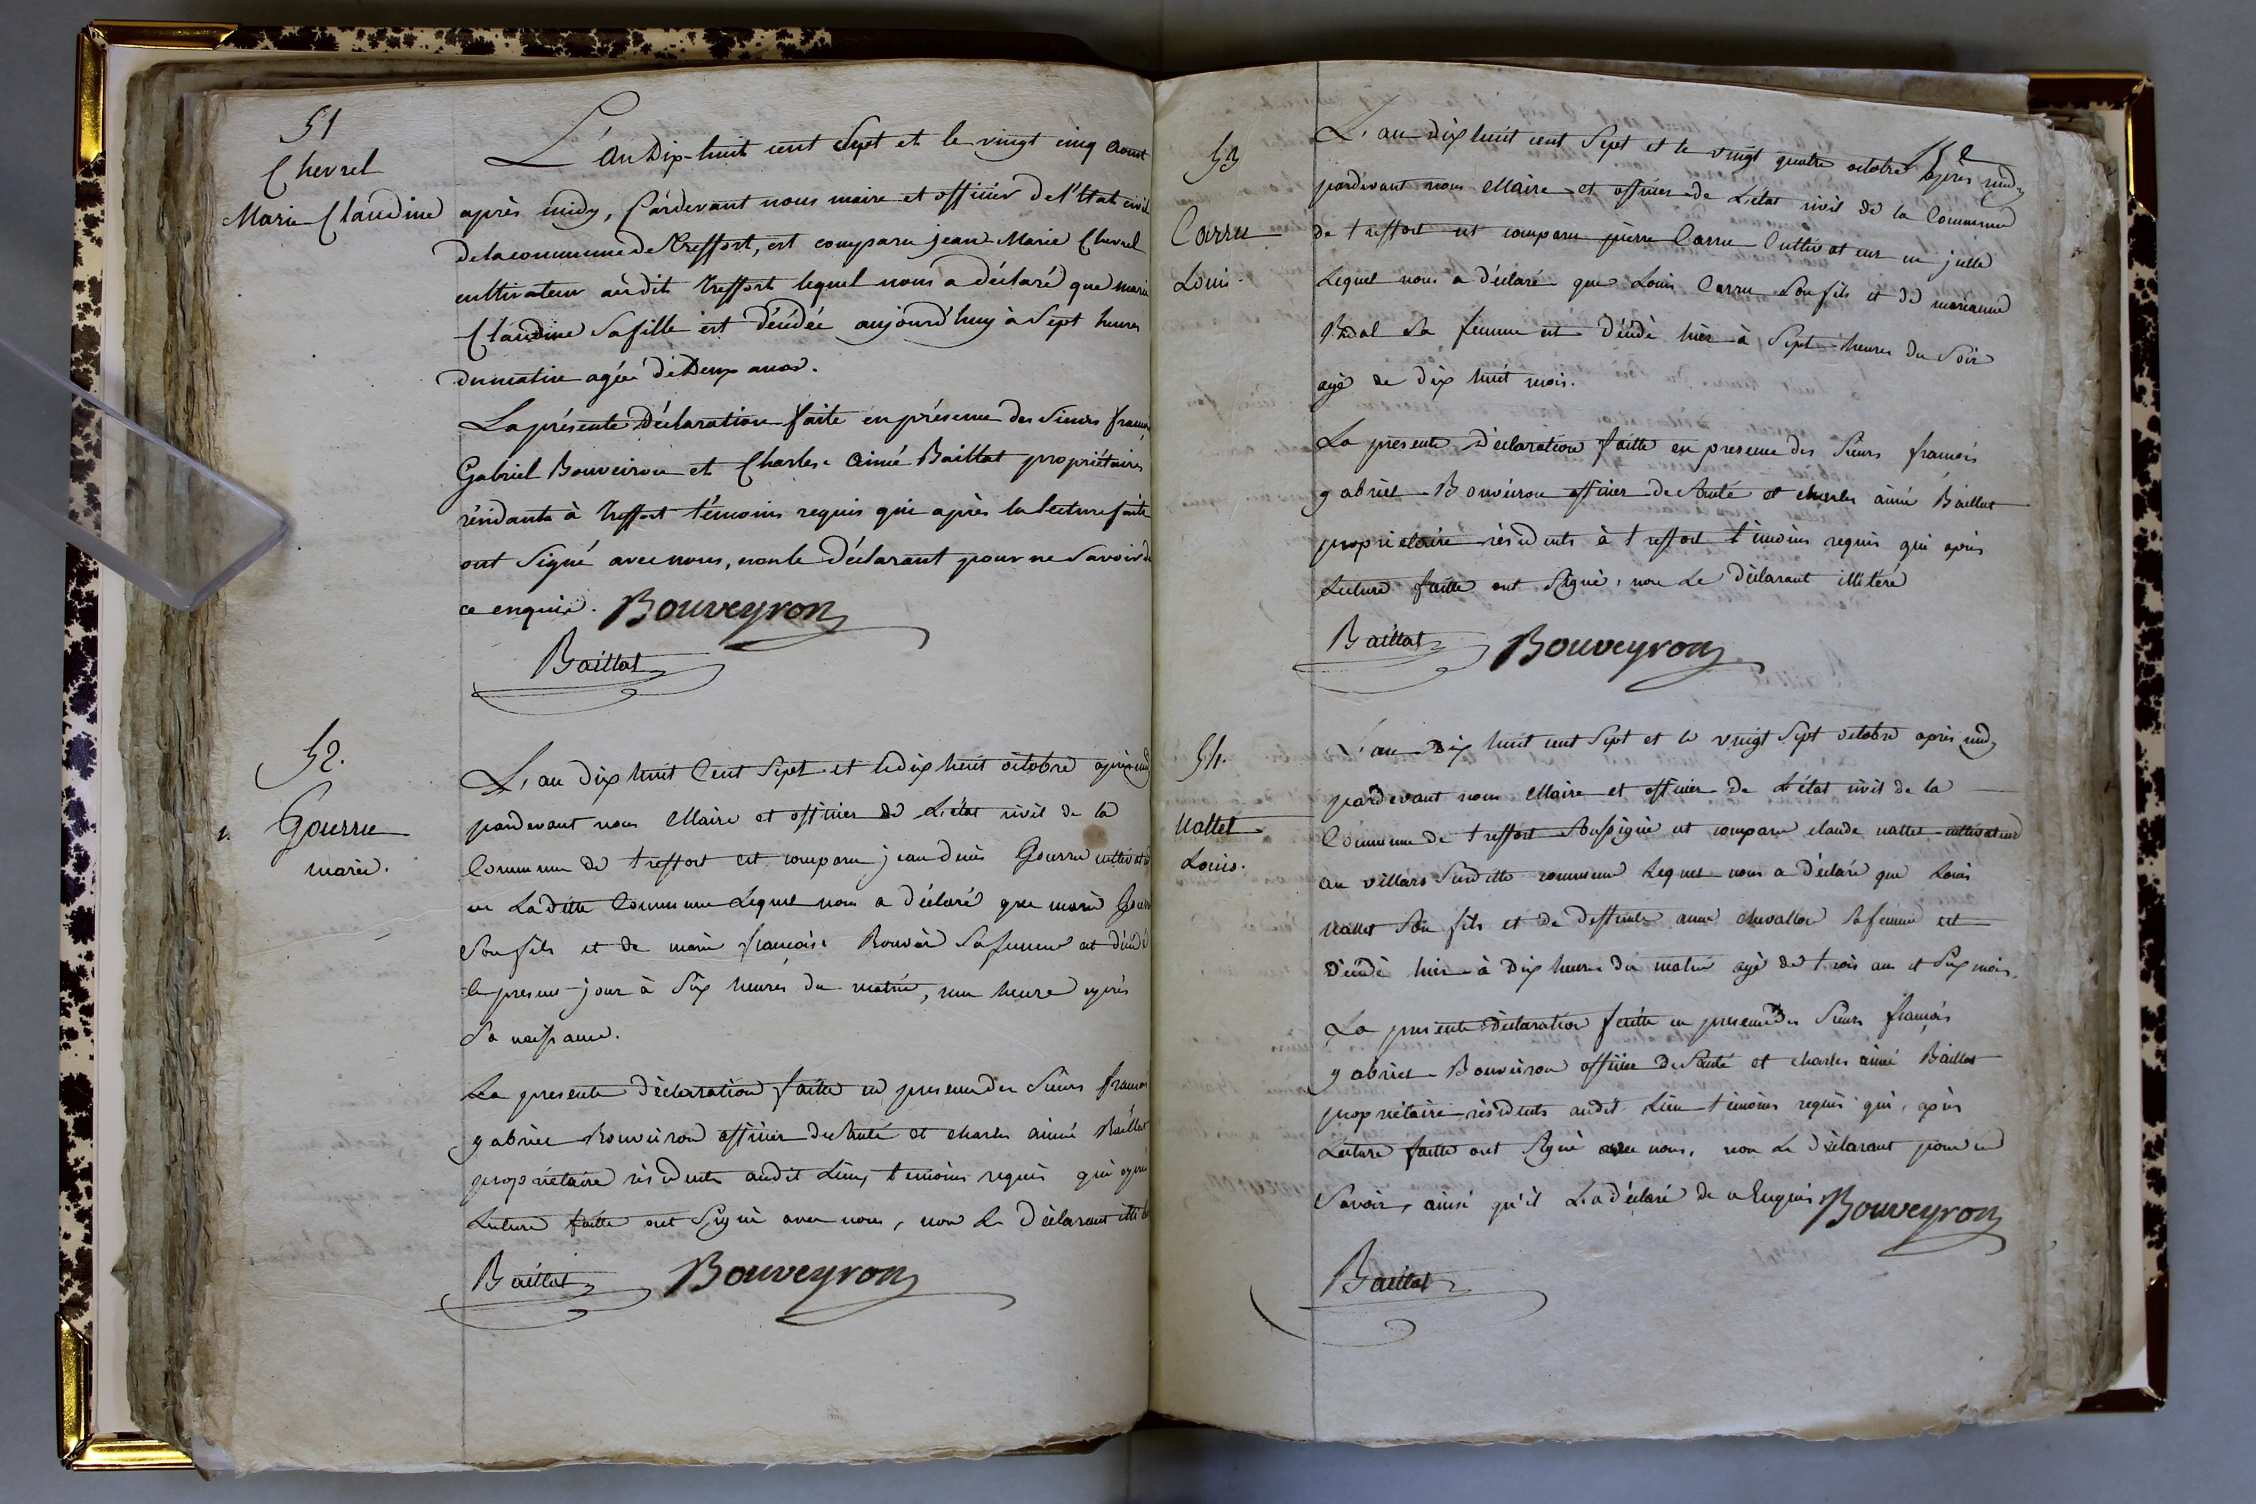 51
Chevrel
Marie Claudine
L'an Dix-huit cent Sept et le vingt cinq aoust
après midy, Pardevant nous maire et officier de l'Etat civil
de la commune de Treffort, est comparu jean-Marie Chevrel
cultivateur audit Treffort lequel nous a déclaré que marie
Claudine Sa fille est décédée aujourd'huy à Sept heures
du matin agée de Deux ans.
La présente Déclaration faite en présence des Sieurs françois
Gabriel Bouveiron et Charles-aimé Baillat propriétaires
résidants à Treffort témoins requis qui après la lecture faite
ont Signé avec nous, non le Déclarant pour ne Savoir de
ce enquis. Bouveyron
Baillat
52.
Gourru
marie.
L'an dix huit Cent Sept et le dix huit octobre après midy
pardevant nous Maire et officier de L'état civil de la
Commune de treffort est comparu jean denis Gourru cultivateur
en Laditte Commune Lequel nous a déclaré que marie
Son fils et de marie françoise Sa femme est décédé
le present jour à Six heures du matin, une heure après
Sa naissance.
La presente déclaration faitte en presence des Sieurs françois
gabriel Bouveiron officier de Santé et charles aimé Baillat
propriétaire résidents audit Lieu, temoins requis qui après
Lecture faitte ont Signé avec nous, non Le Déclarant
Baillat Bouveyron
52
53
Carru
Louis.
L'an dix huit cent Sept et le vingt quatre octobre après midy
pardevant nous Maire et officier de L'état civil de la Commune
de treffort est comparu pierre Carru Cultivateur
Lequel nous a déclaré que Louis Carru Son fils et de marianne
Sa femme est décédé hier à Sept heures du Soir
agé de dix huit mois.
La presente déclaration faitte en presence des Sieurs françois
gabriel Bouveiron officier de Santé et charles aimé Baillat
propriétaire résidents à treffort témoins requis qui après
Lecture faitte ont Signé, non Le déclarant illitéré
Baillat Bouveyron
54.
Nallet
Louis.
L'an Dix huit cent Sept et le vingt Sept octobre après midy
pardevant nous Maire et officier de L'état civil de la
Commune de treffort Soussigné est comparu claude nallet cultivateur
au villars Susditte commune Lequel nous a déclaré que Louis
nallet Son fils et de deffunte anne chevallon Sa femme est
Décédé hier à Dix heures du matin agé de trois ans et Six mois.
La presente déclaration faitte en presence des Sieurs françois
gabriel Bouveiron officier de Santé et charles aimé Baillat
propriétaire résidents audit Lieu témoins requis qui, après
Lecture faitte ont Signé avec nous, non Le déclarant pour ne
Savoir, ainsi qu'il L'a déclaré de ce Enquis Bouveyron
Baillat